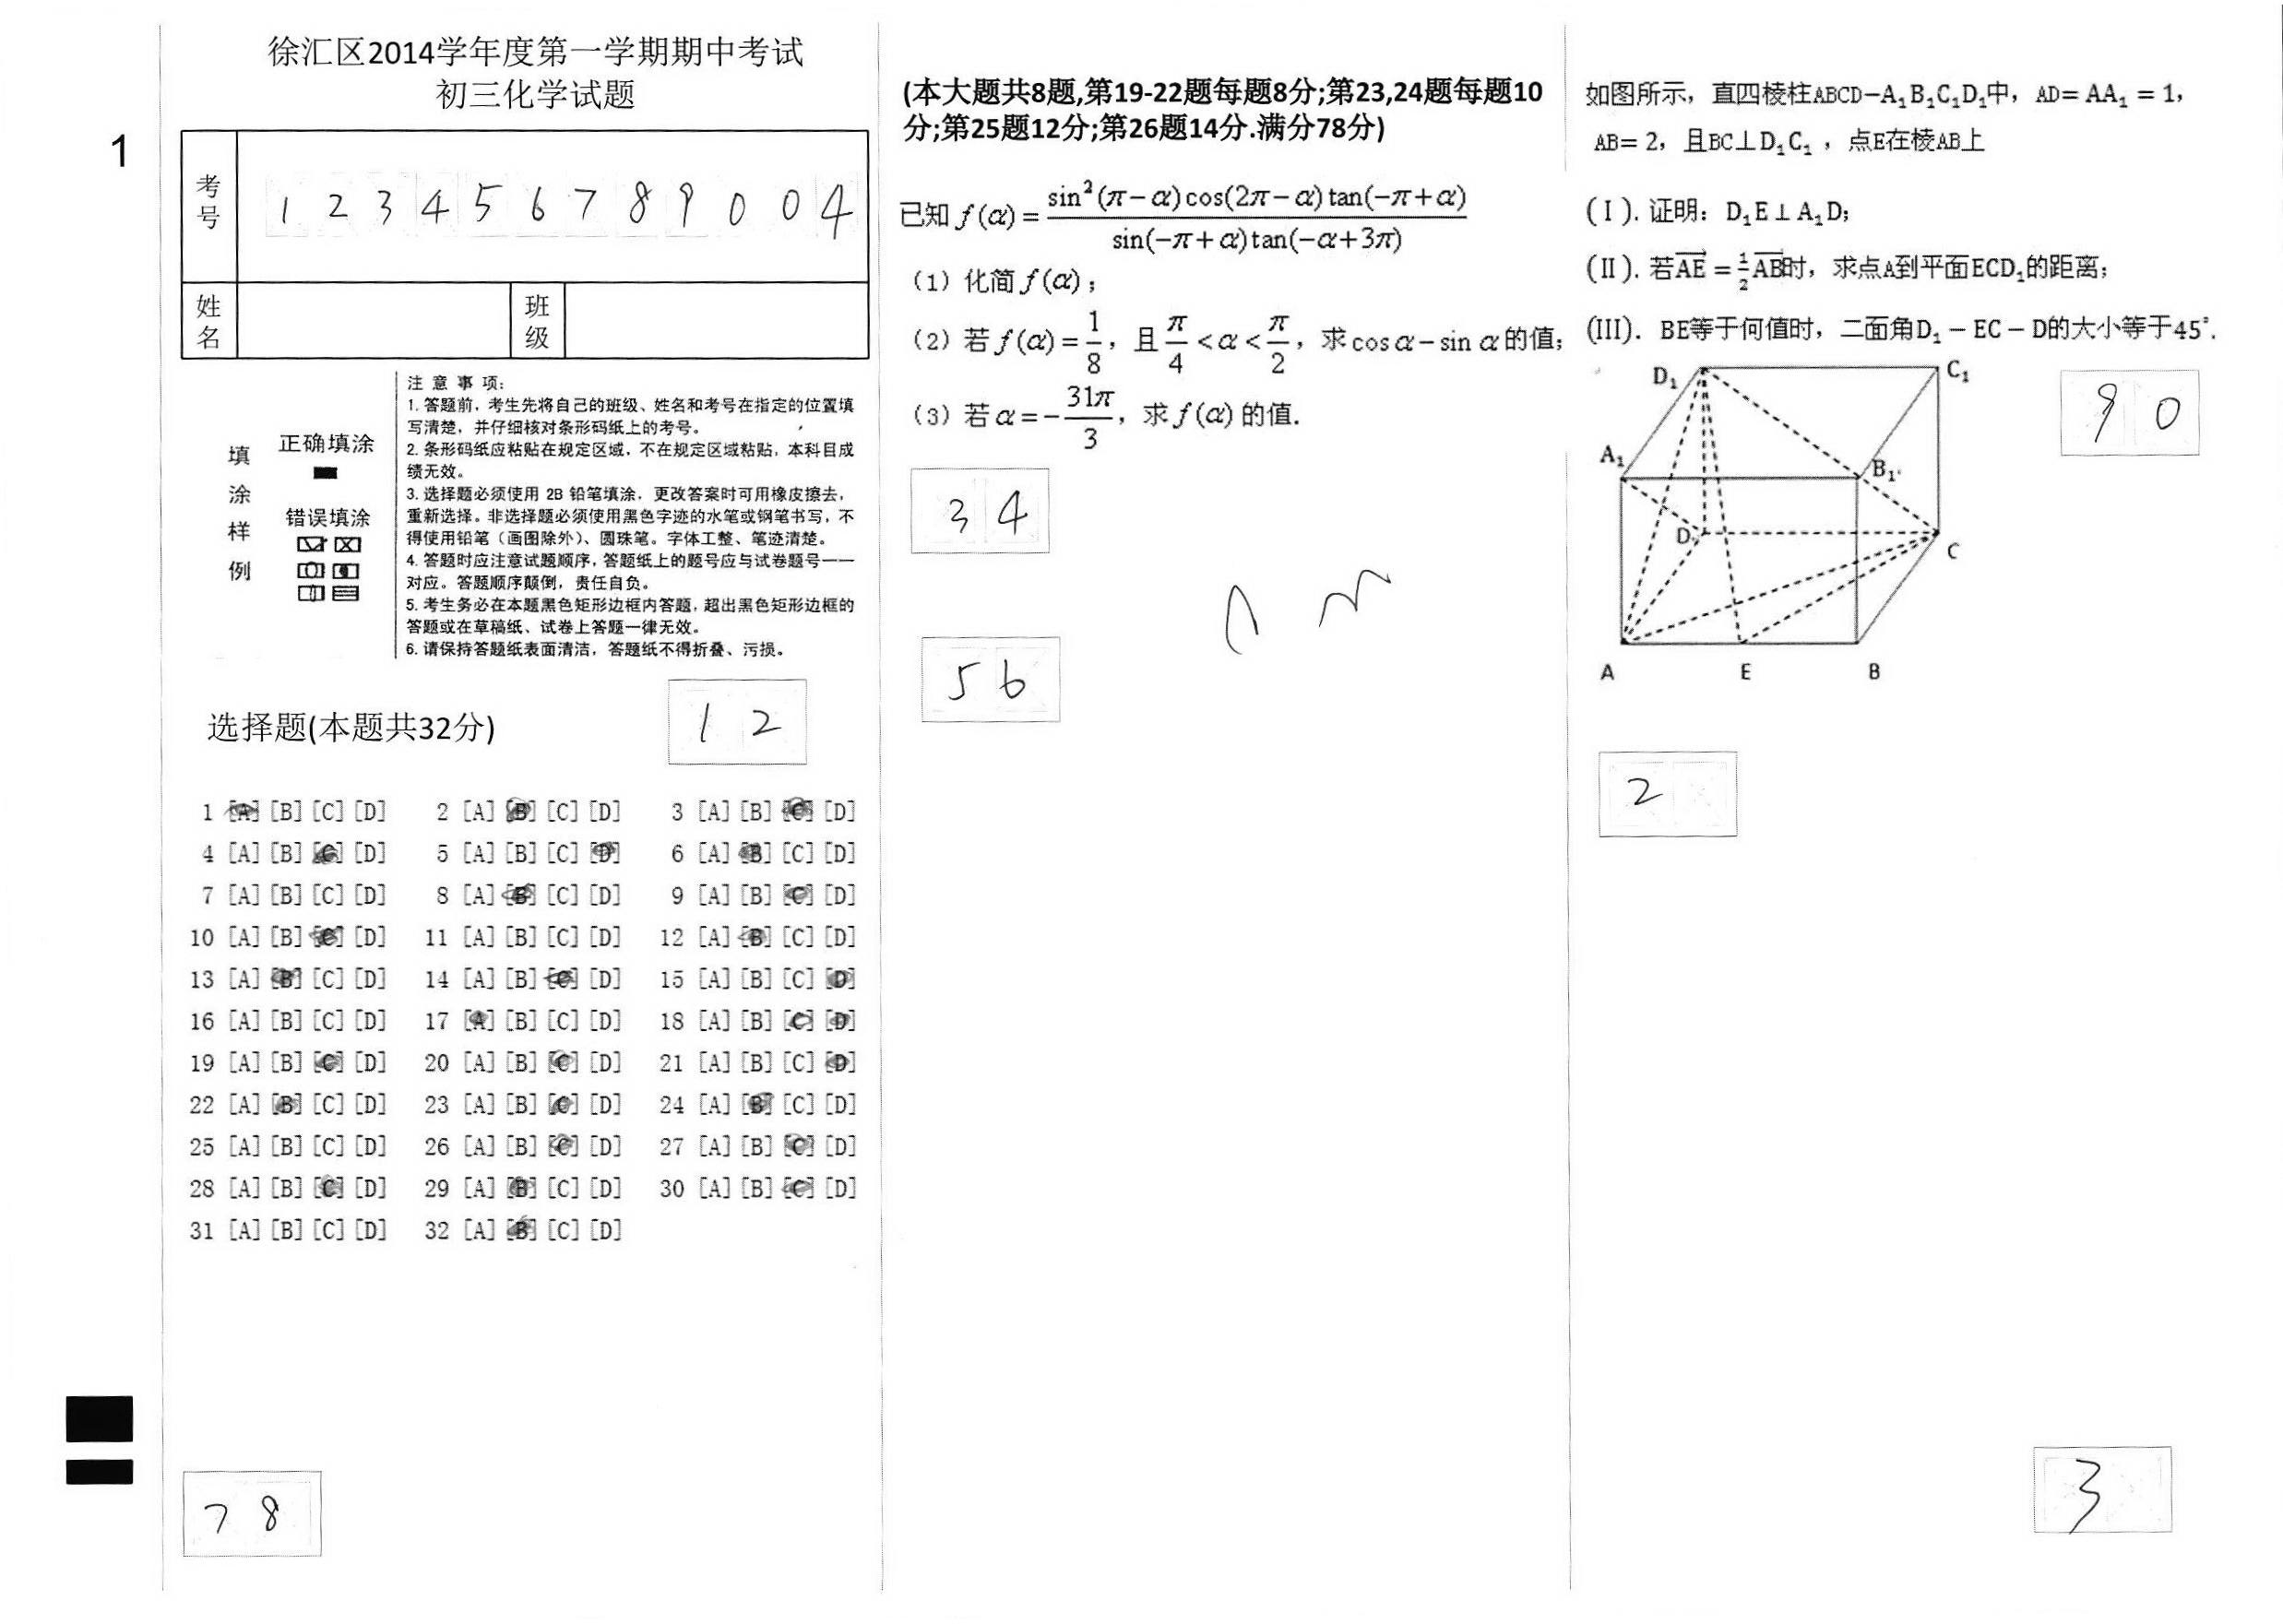 徐汇区2014学年度第一学期期中考试
初三化学试题
1
考号
1 2 3 4 5 6 7 8 9 0 0 4
姓名
班级
填涂样例
正确填涂
错误填涂
注 意 事 项:
1. 答题前, 考生先将自己的班级、姓名和考号在指定的位置填
写清楚, 并仔细核对条形码纸上的考号。
2. 条形码纸应粘贴在规定区域, 不在规定区域粘贴, 本科目成
绩无效。
3. 选择题必须使用 2B 铅笔填涂, 更改答案时可用橡皮擦去,
重新选择。非选择题必须使用黑色字迹的水笔或钢笔书写, 不
得使用铅笔（画图除外）、圆珠笔。字体工整、笔迹清楚。
4. 答题时应注意试题顺序, 答题纸上的题号应与试卷题号一一
对应。答题顺序颠倒, 责任自负。
5. 考生务必在本题黑色矩形边框内答题, 超出黑色矩形边框的
答题或在草稿纸、试卷上答题一律无效。
6. 请保持答题纸表面清洁, 答题纸不得折叠、污损。
选择题(本题共32分)
1 2
1 [A] [B] [C] [D] 2 [A] [B] [C] [D] 3 [A] [B] [C] [D]
4 [A] [B] [C] [D] 5 [A] [B] [C] [D] 6 [A] [B] [C] [D]
7 [A] [B] [C] [D] 8 [A] [B] [C] [D] 9 [A] [B] [C] [D]
10 [A] [B] [C] [D] 11 [A] [B] [C] [D] 12 [A] [B] [C] [D]
13 [A] [B] [C] [D] 14 [A] [B] [C] [D] 15 [A] [B] [C] [D]
16 [A] [B] [C] [D] 17 [A] [B] [C] [D] 18 [A] [B] [C] [D]
19 [A] [B] [C] [D] 20 [A] [B] [C] [D] 21 [A] [B] [C] [D]
22 [A] [B] [C] [D] 23 [A] [B] [C] [D] 24 [A] [B] [C] [D]
25 [A] [B] [C] [D] 26 [A] [B] [C] [D] 27 [A] [B] [C] [D]
28 [A] [B] [C] [D] 29 [A] [B] [C] [D] 30 [A] [B] [C] [D]
31 [A] [B] [C] [D] 32 [A] [B] [C] [D]
7 8
(本大题共8题,第19-22题每题8分;第23,24题每题10
分;第25题12分;第26题14分.满分78分)
已知 f(α) = sin²(π−α)cos(2π−α)tan(−π+α) / sin(−π+α)tan(−α+3π)
（1）化简 f(α)；
（2）若 f(α) = 1/8，且 π/4 < α < π/2，求cos α − sin α 的值；
（3）若 α = −31π/3，求 f(α) 的值.
3 4
5 6
如图所示，直四棱柱ABCD−A₁B₁C₁D₁中，AD= AA₁ = 1，
AB= 2，且BC⊥D₁C₁，点E在棱AB上
(Ⅰ). 证明：D₁E⊥A₁D;
(Ⅱ). 若A͞E⃗ = ½A͞B⃗时，求点A到平面ECD₁的距离;
(III). BE等于何值时，二面角D₁ − EC − D的大小等于45°.
D₁ C₁
A₁ B₁
D C
A E B
9 0
2
3